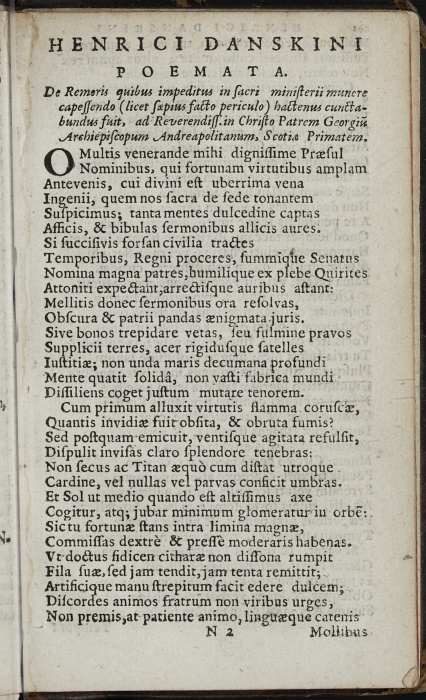 HENRICI DANSKINI
POEMATA.
De Remoris quibus impeditus in sacri ministerii munere
capessendo (licet sæpius facto periculo) hactenus cuncta-
bundus fuit, ad Reverendiss. in Christo Patrem Georgiũ
Archiepiscopum Andreapolitanum, Scotiæ Primatem.
O Multis venerande mihi dignissime Præsul
Nominibus, qui fortunam virtutibus amplam
Antevenis, cui divini est uberrima vena
Ingenii, quem nos sacra de sede tonantem
Suspicimus; tanta mentes dulcedine captas
Afficis, & bibulas sermonibus allicis aures.
Si succisivis forsan civilia tractes
Temporibus, Regni proceres, summique Senatus
Nomina magna patres, humilique ex plebe Quirites
Attoniti expectant, arrectisque auribus astant:
Mellitis donec sermonibus ora resolvas,
Obscura & patrii pandas ænigmata juris.
Sive bonos trepidare vetas, seu fulmine pravos
Supplicii terres, acer rigidusque satelles
Iustitiæ; non unda maris decumana profundi
Mente quatit solidâ, non vasti fabrica mundi
Dissiliens coget justum mutare tenorem.
Cum primum alluxit virtutis flamma coruscæ,
Quantis invidiæ fuit obsita, & obruta fumis?
Sed postquam emicuit, ventisque agitata refulsit,
Dispulit invisas claro splendore tenebras:
Non secus ac Titan æquò cum distat utroque
Cardine, vel nullas vel parvas conficit umbras.
Et Sol ut medio quando est altissimus axe
Cogitur, atq; jubar minimum glomeratur in orbẽ:
Sic tu fortunæ stans intra limina magnæ,
Commissas dextrè & pressè moderaris habenas.
Vt doctus fidicen citharæ non dissona rumpit
Fila suæ, sed jam tendit, jam tenta remittit;
Artificique manu strepitum facit edere dulcem;
Discordes animos fratrum non viribus urges,
Non premis, at patiente animo, linguæque catenis
N 2 Mollibus
N.